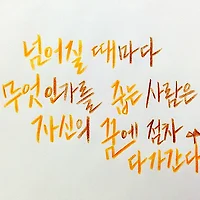 넘어질 때마다
무엇인가를 줍는 사람은
자신의 꿈에 점차
다가간다